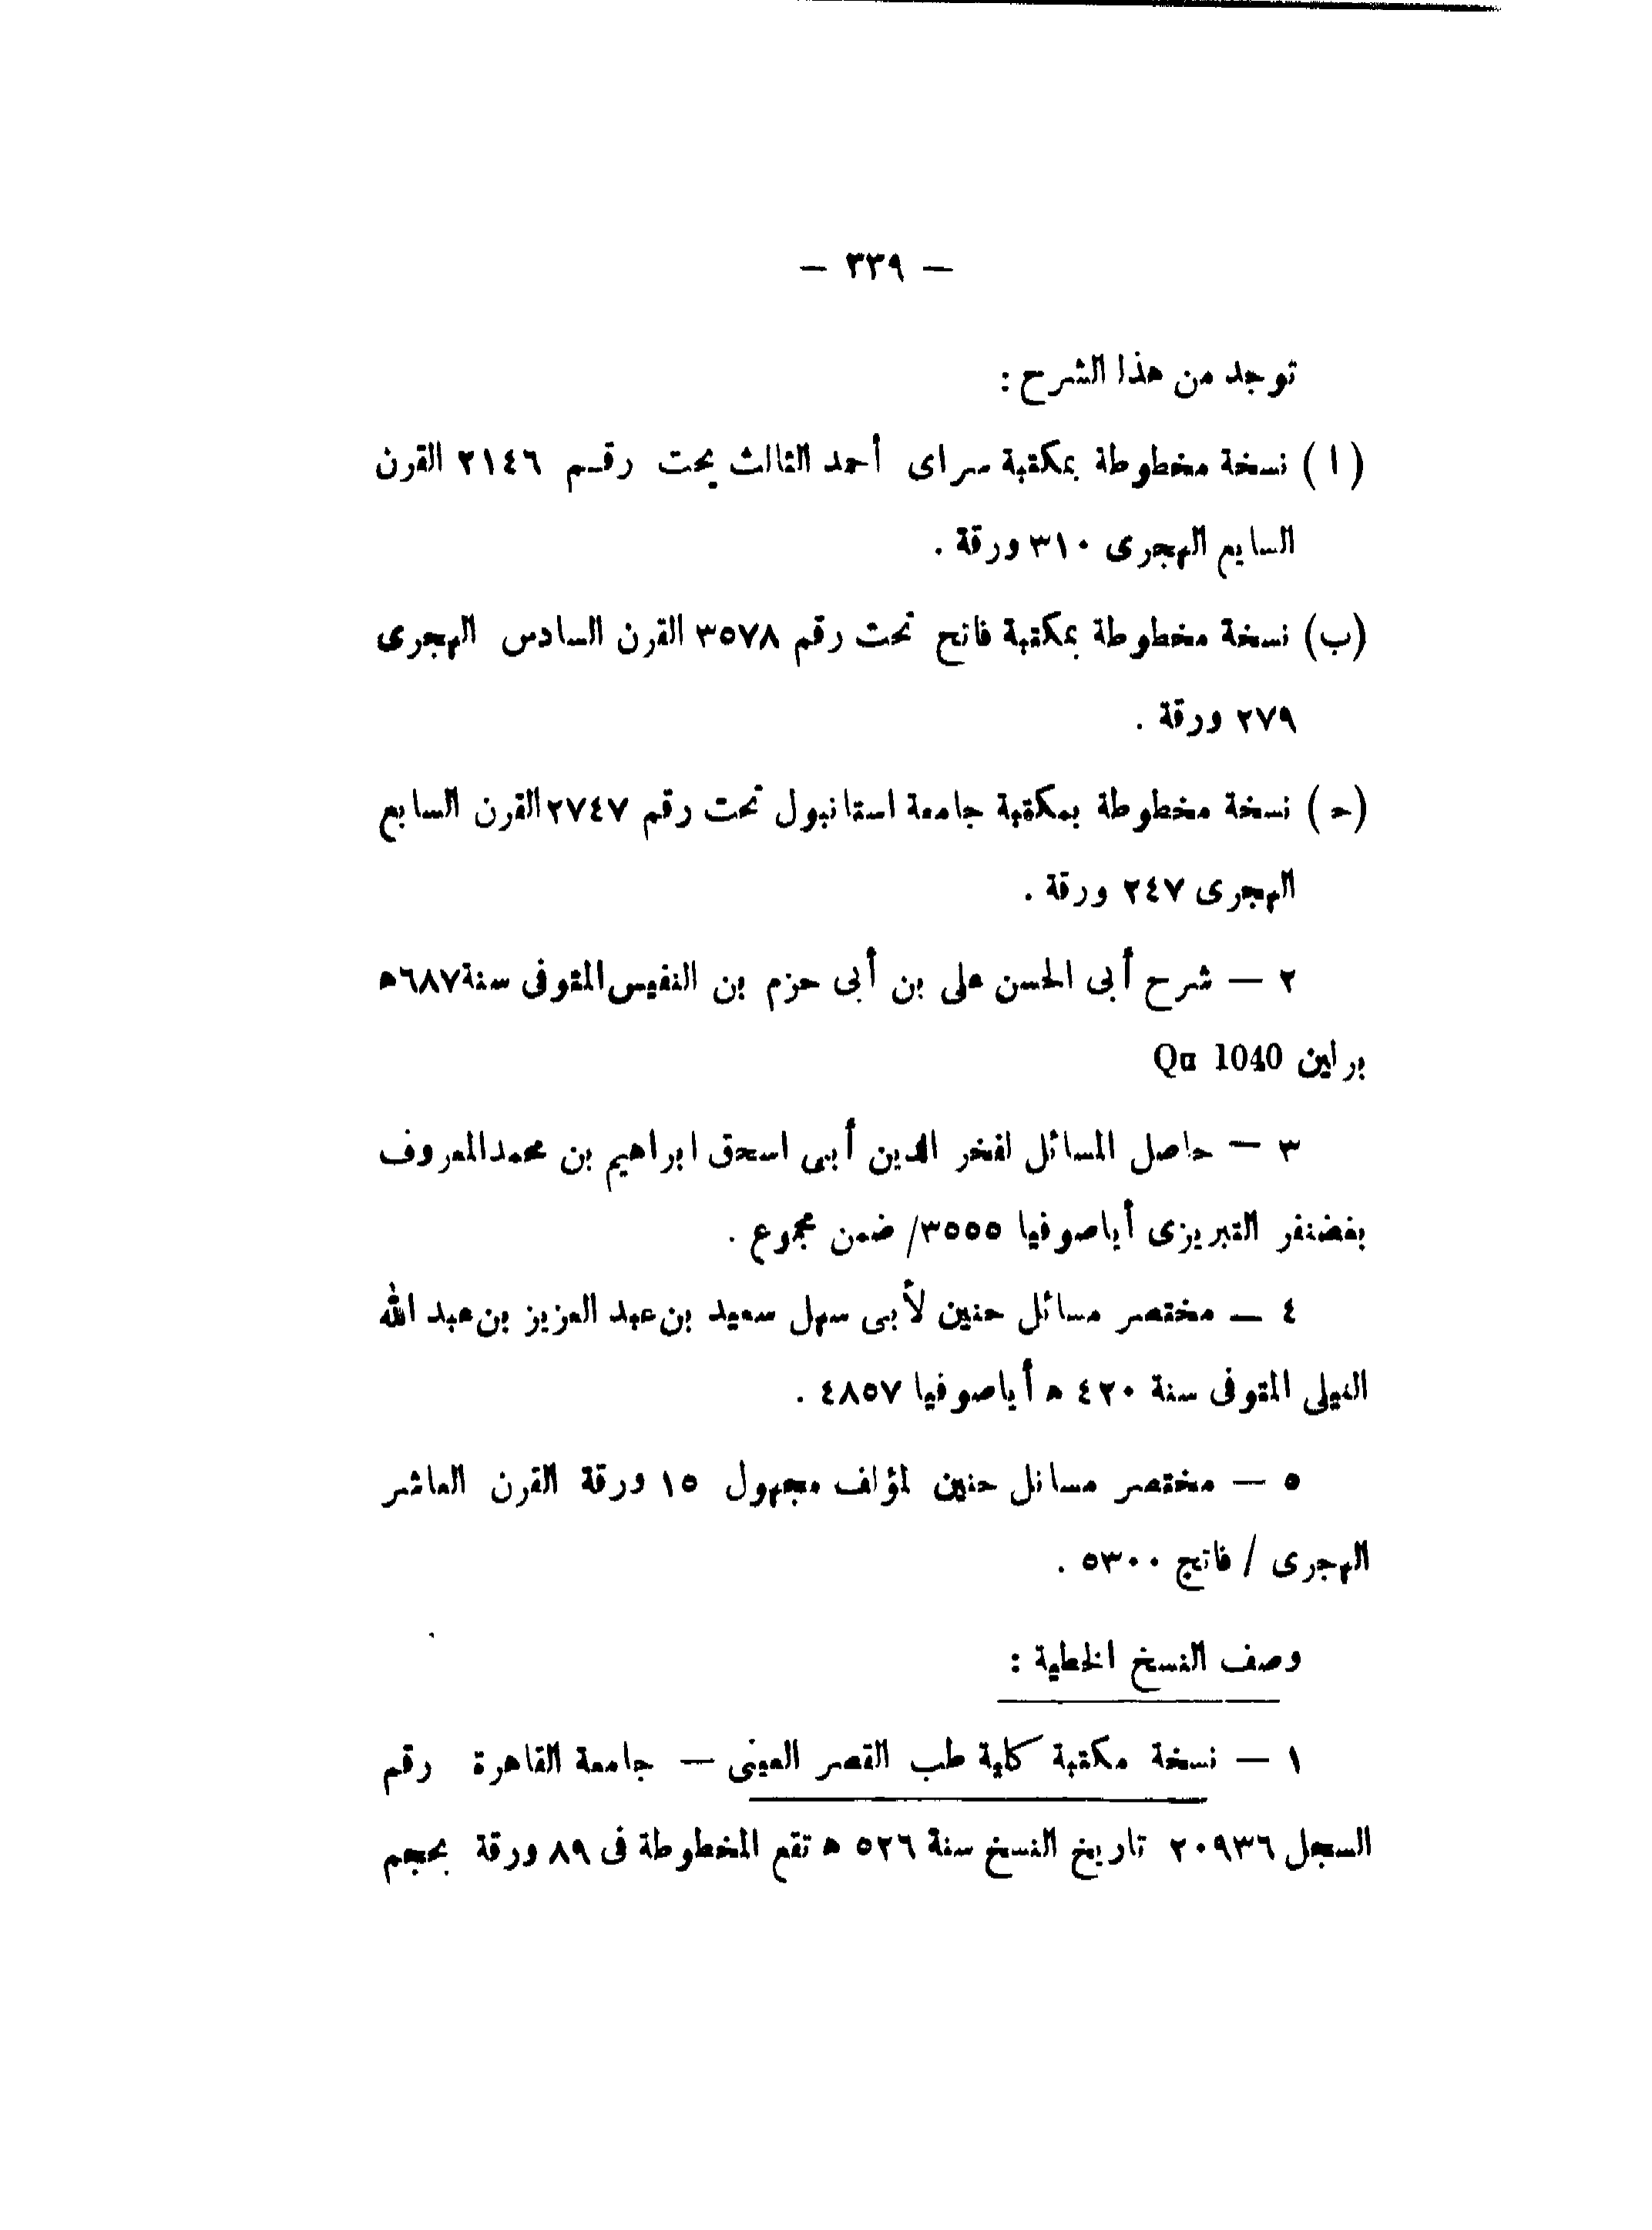 — ٣٣٩ —
توجد من هذا الشرح :
( ا ) نسخة مخطوطة بمكتبة سراى أحمد الثالث بحت رقم ٢١٤٦ القرن
السايع الهجرى ٣١٠ ورقة .
(ب) نسخة مخطوطة بمكتبة فاتح تحت رقم ٣٥٧٨ القرن السادس الهجرى
٢٧٩ ورقة .
(ح) نسخة مخطوطة بمكتبة جامعة استانبول تحت رقم ٢٧٤٧ القرن السابع
الهجرى ٢٤٧ ورقة .
٢ — شرح أبى الحسن على بن أبى حزم بن النفيس المتوفى سنة ٦٨٧ه
برلين Qu 1040
٣ — حاصل المسائل لفخر الدين أبى اسحق ابراهيم بن محمد المعروف
بغضنفر التبريزى أياصوفيا ٣٥٥٥/ ضمن مجموع .
٤ — مختصر مسائل حنين لأبى سهل سعيد بن عبد العزيز بن عبد الله
النيلى المتوفى سنة ٤٢٠ ه أياصوفيا ٤٨٥٧ .
٥ — مختصر مسائل حنين لمؤلف مجهول ١٥ ورقة القرن العاشر
الهجرى / فاتح ٥٣٠٠ .
وصف النسخ الخطية :
١ — نسخة مكتبة كلية طب القصر العينى — جامعة القاهرة رقم
السجل ٢٠٩٣٦ تاريخ النسخ سنة ٥٢٦ ه تقع المخطوطة فى ٨٩ ورقة بحجم